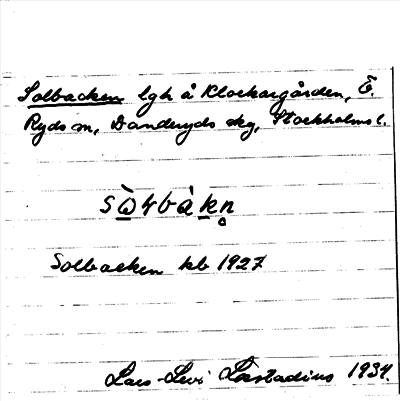 Solbacken lgh å Klockargården, Ö.
Ryds sn, Danderyds skg, Stockholms l.
sò̱ɬbàḵn̥
Solbacken kb 1927
Lars-Levi Læstadius 1934.